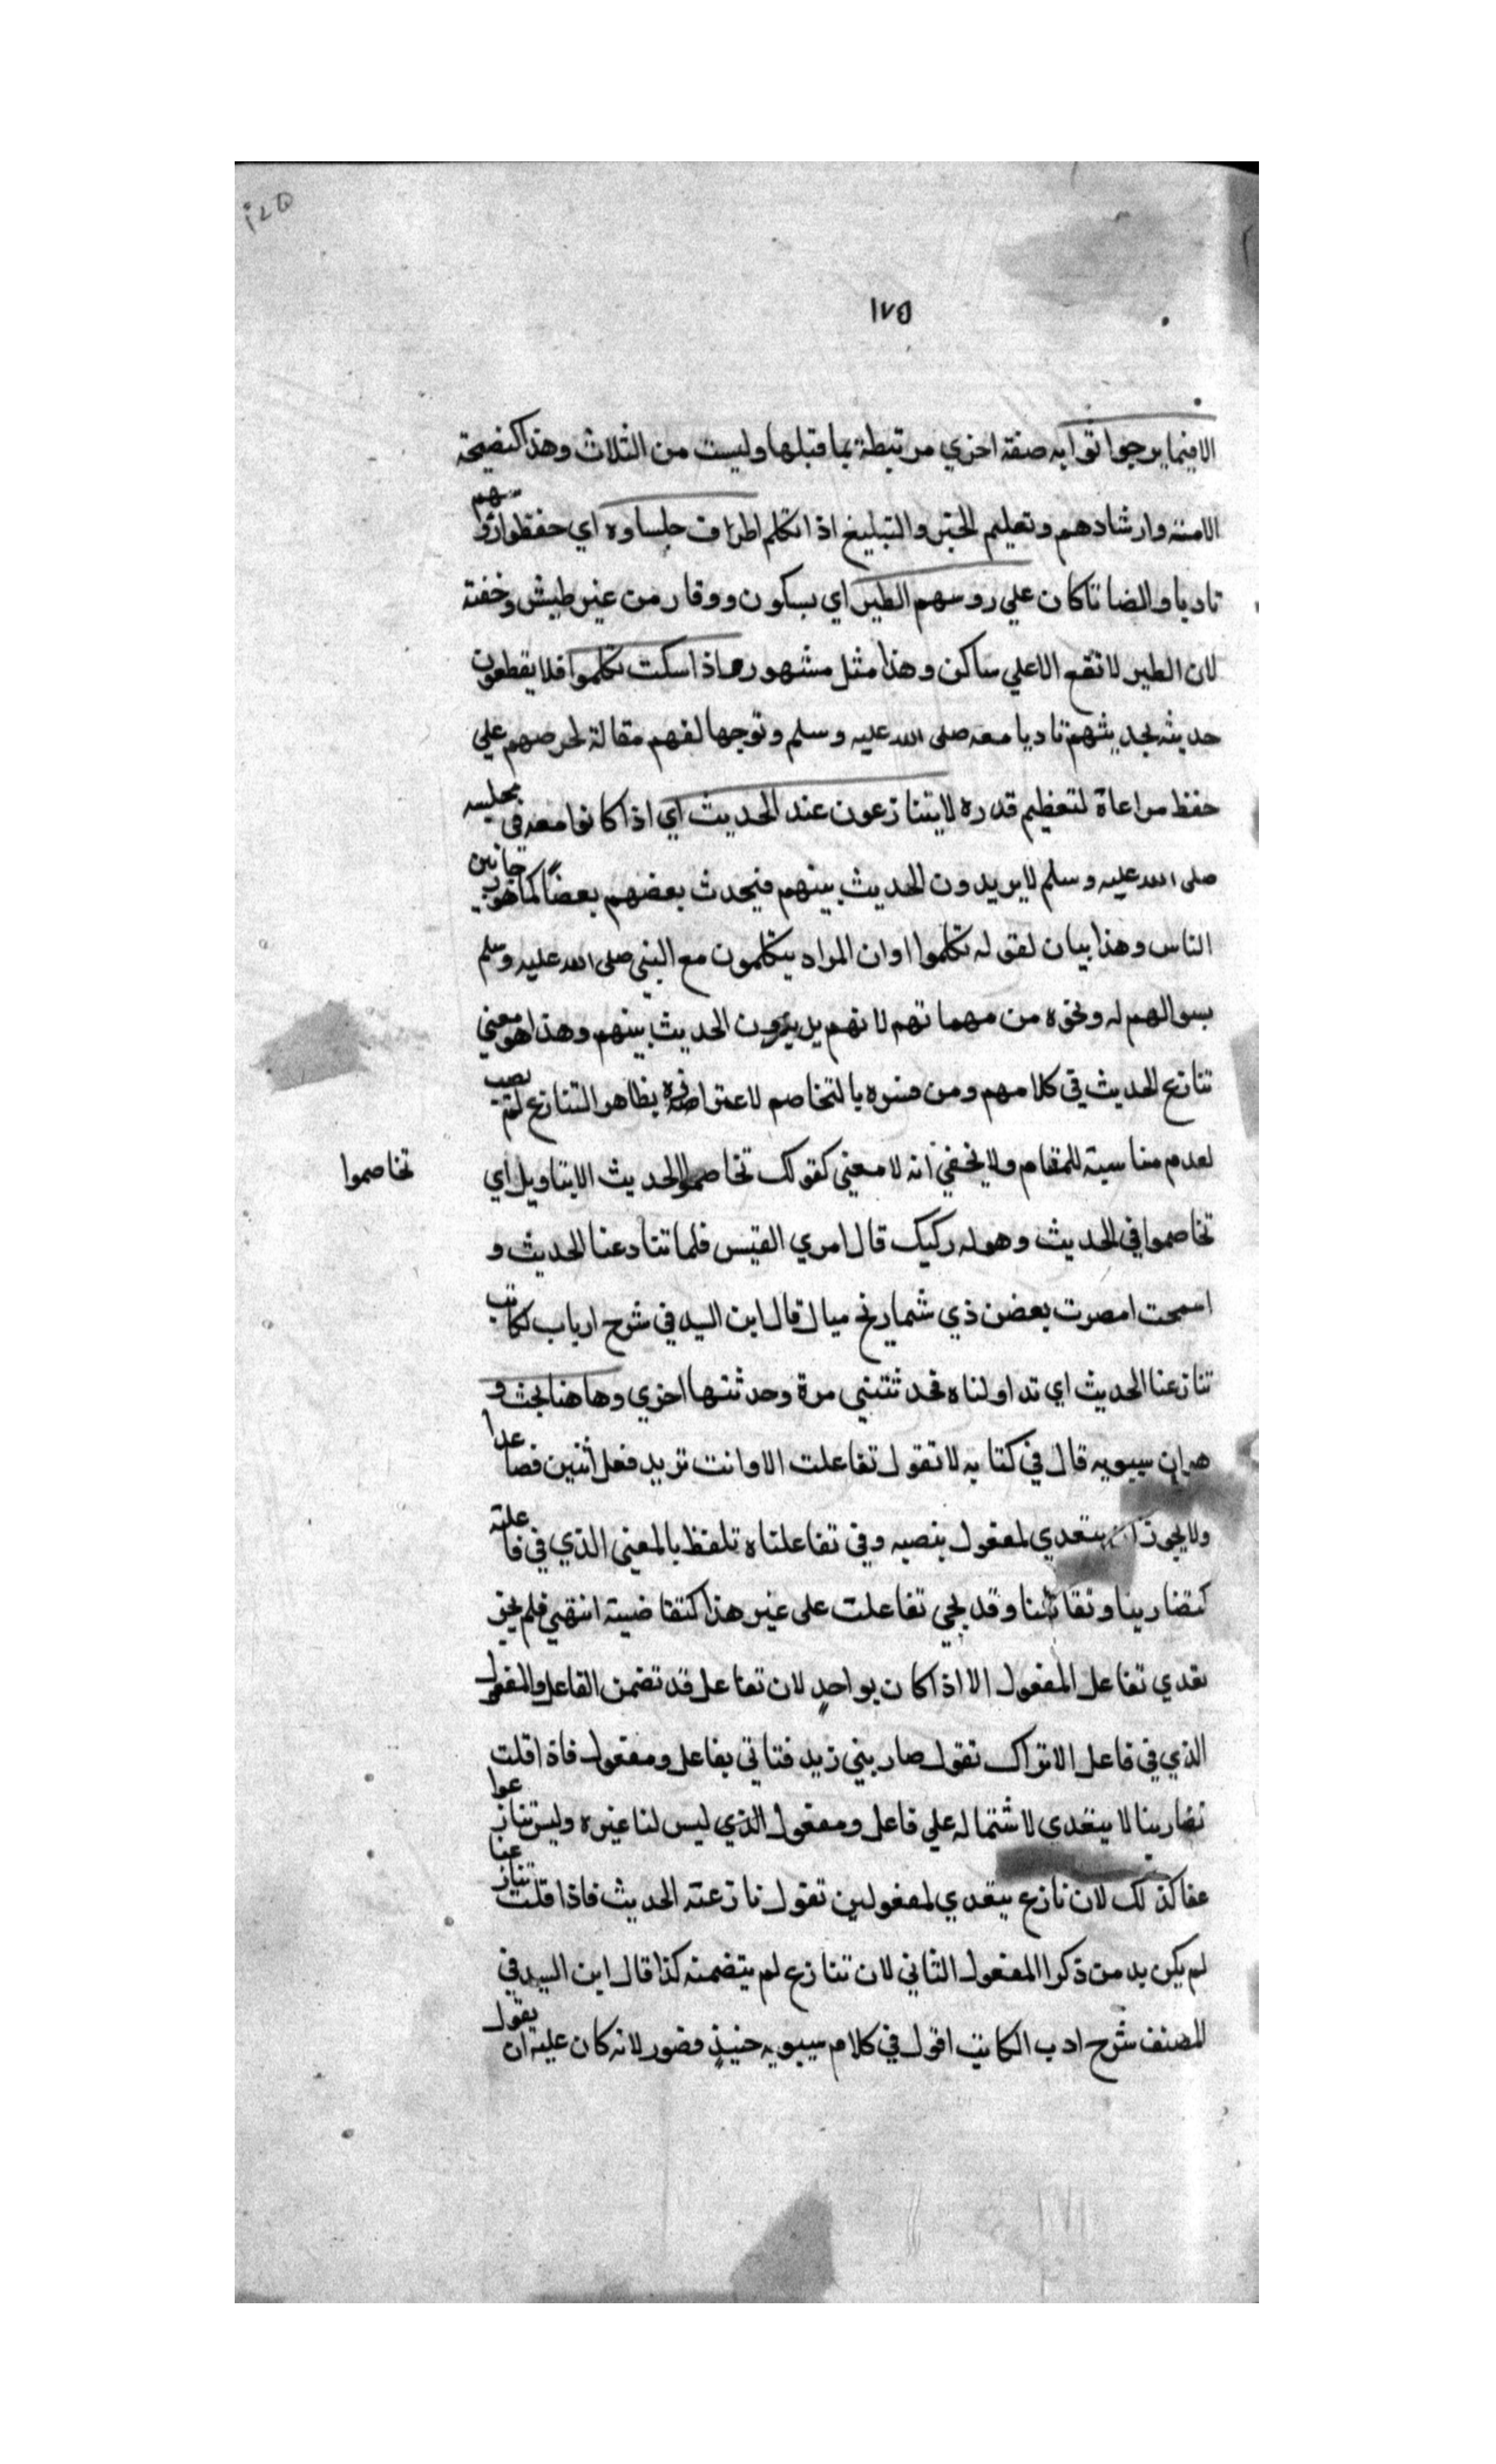 ١٧٥
١٧٥
الا فيما يرجوا ثوابه صفة اخري مرتبطة بما قبلها وليست من الثلاث وهذا كنصيحة
الامته وارشادهم وتعليم الخير والتبليغ اذا تكلم اطراف جلساوه اي حفظوا
تاديا وانضاتا كان علي روسهم الطير اي بسكون ووقار من غير طيش وخفته
لان الطير لا تقع الا علي ساكن وهذا مثل مشهور اذا سكت تكلموا فلا يقطعون
حديثه بحديثهم تاديا معه صلى الله عليه وسلم وتوجها لفهم مقالة لحرصهم علي
حفظ مراعاة لتعظيم قدره لا يتنازعون عند الحديث اي اذا كانوا معه في مجلسه
صلى الله عليه وسلم لا يريدون الحديث بينهم فيحدث بعضهم بعضًا كما هو
الناس وهذا بيان لقوله تكلموا او ان المراد يتكلمون مع النبي صلى الله عليه وسلم
بسوالهم له ونحوه من مهماتهم لا نهم يديرون الحديث بينهم وهذا هو معني
تنازع الحديث في كلامهم ومن فسره بالتخاصم لاعتراضه بظاهر التنازع لم يصب
لعدم مناسبته للمقام ولا يخفي انه لا معني كقولك تخاصموا الحديث الا بتاويل اي
تخاصموا
تخاصموا في الحديث وهو له ركيك قال امري القيس فلما تنادعنا الحديث و
اسمحت امصرت بعضن ذي شماريخ ميال قال ابن السيد في شرح ارباب كاتب
تنازعنا الحديث اي تداولناه فحدثتني مرة وحدثتها اخري وها هنا بحث و
هو ان سيبويه قال في كتابه لا تقول تفاعلت الا وانت تريد فعل اثنين فصاعدا
ولا يجوز ان يتعدي لمفعول بنصبه وفي تفاعلناه تلفظ بالمعني الذي في فاعلته
كتضاربنا وتقاتلنا وقد يجي تفاعلت على غير هذا كتقاضيته انتهي فلم يجز
تعدي تفاعل المفعول الا اذا كان بواحدٍ لان تفاعل قد تضمن الفاعل والمفعول
الذي في فاعل الا تراك تقول ضاربني زيد فتاتي بفاعل ومفعول فاذا قلت
تضاربنا لا يتعدى لاشتماله علي فاعل ومفعول الذي ليس لنا غيره وليس تنازعوا
عفا كذلك لان نازع يتعدي لمفعولين تقول نازعته الحديث فاذا قلت تنازعنا
لم يكن بد من ذكرا المفعول الثاني لان تنازع لم يتضمنه كذا قال ابن السيد في
للمصنف شرح ادب الكاتب اقول في كلام سيبويه حنيذٍ قصور لانه كان عليه ان يقول